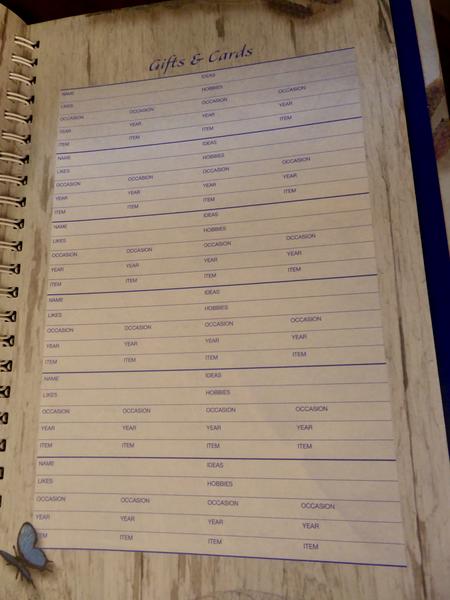 Gifts & Cards
NAME IDEAS
LIKES HOBBIES
OCCASION OCCASION OCCASION OCCASION
YEAR YEAR YEAR YEAR
ITEM ITEM ITEM ITEM
NAME IDEAS
LIKES HOBBIES
OCCASION OCCASION OCCASION OCCASION
YEAR YEAR YEAR YEAR
ITEM ITEM ITEM ITEM
NAME IDEAS
LIKES HOBBIES
OCCASION OCCASION OCCASION OCCASION
YEAR YEAR YEAR YEAR
ITEM ITEM ITEM ITEM
NAME IDEAS
LIKES HOBBIES
OCCASION OCCASION OCCASION OCCASION
YEAR YEAR YEAR YEAR
ITEM ITEM ITEM ITEM
NAME IDEAS
LIKES HOBBIES
OCCASION OCCASION OCCASION OCCASION
YEAR YEAR YEAR YEAR
ITEM ITEM ITEM ITEM
NAME IDEAS
LIKES HOBBIES
OCCASION OCCASION OCCASION OCCASION
YEAR YEAR YEAR YEAR
ITEM ITEM ITEM ITEM